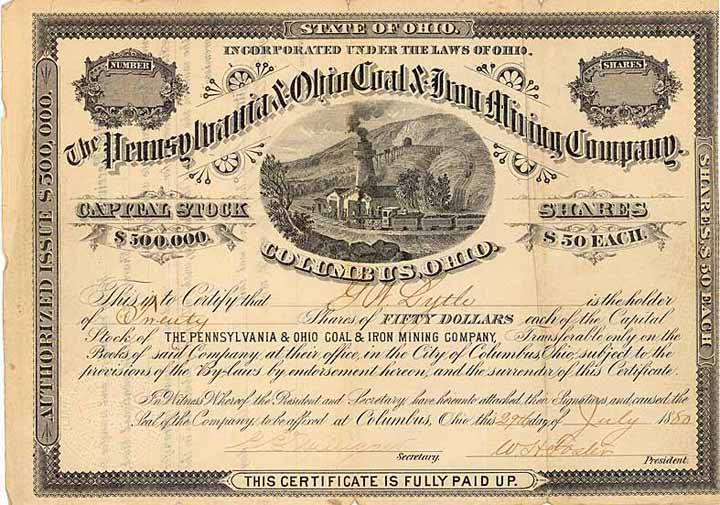 STATE OF OHIO.
INCORPORATED UNDER THE LAWS OF OHIO.
NUMBER
SHARES
The Pennsylvania & Ohio Coal & Iron Mining Company.
CAPITAL STOCK
$500,000.
SHARES
$50 EACH.
COLUMBUS, OHIO.
AUTHORIZED ISSUE $500,000.
SHARES, $50 EACH
This is to Certify that G W Lytle is the holder
of Twenty Shares of FIFTY DOLLARS each of the Capital
Stock of THE PENNSYLVANIA & OHIO COAL & IRON MINING COMPANY, Transferable only on the
Books of said Company at their office, in the City of Columbus Ohio, subject to the
provisions of the By-laws by endorsement hereon, and the surrender of this Certificate.
In Witness Whereof the President and Secretary, have hereunto attached their Signatures and caused the
Seal of the Company to be affixed at Columbus, Ohio this day of July 1880
W H Foster
Secretary.
President.
THIS CERTIFICATE IS FULLY PAID UP.